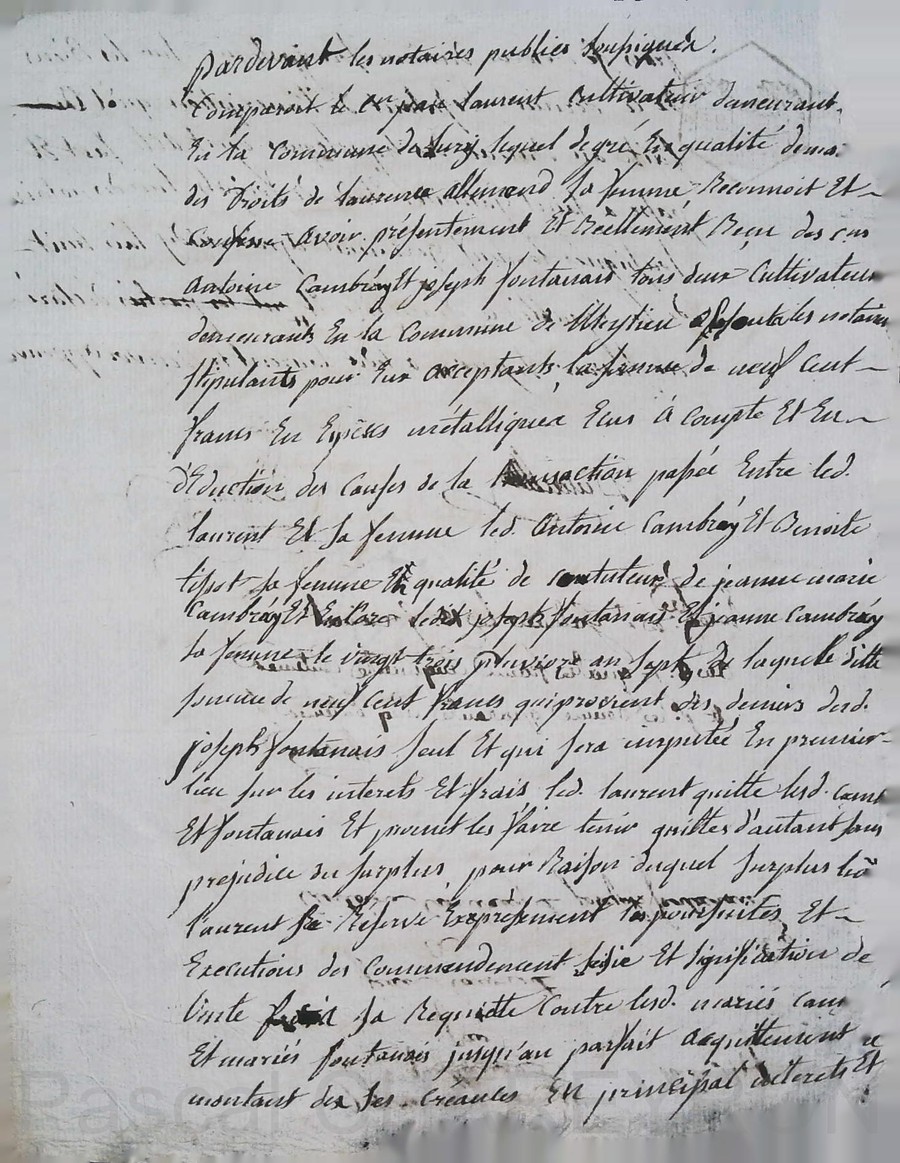 Pardevant les notaires publics soussignés.
Comparoit le cn jean laurent cultivateur demeurant
En la Commune de lequel de gré En qualité de
des Droits de laurence allemand sa femme, Reconnoit Et
Confesse avoir présentement Et Réellement Reçu des cns
antoine Cambray Et joseph fontanais tous deux Cultivateurs
demeurants En la Commune de Meyrieu les notaires
stipulants pour Eux acceptants, la somme de neuf Cent
francs En Espèces métalliques Eous à Compte Et En
déduction des Causes de la transaction passée Entre led.
laurent Et sa femme led. antoine Cambray Et Benoite
tipot sa femme En qualité de contuteurs de jeanne marie
Cambray Et Encore led. joseph fontanais Et jeanne Cambray
sa femme le vingt trois pluviose an sept, De laquelle ditte
somme de neuf Cent francs qui provient des deniers dud.
joseph fontanais seul Et qui sera imputée En premier
lieu sur les interets Et frais led. laurent quitte lesd. Cam
Et fontanais Et promet les faire tenir quittes d'autant sans
préjudice du surplus, pour Raison duquel surplus led
laurent se Reserve Expressement les poursuites Et
Executions des Commendement saisie Et signification de
Vente sa Requette Contre lesd. mariés cam
Et mariés fontanais jusqu'au parfait acquittement
montant des ses Créances En principal interets Et